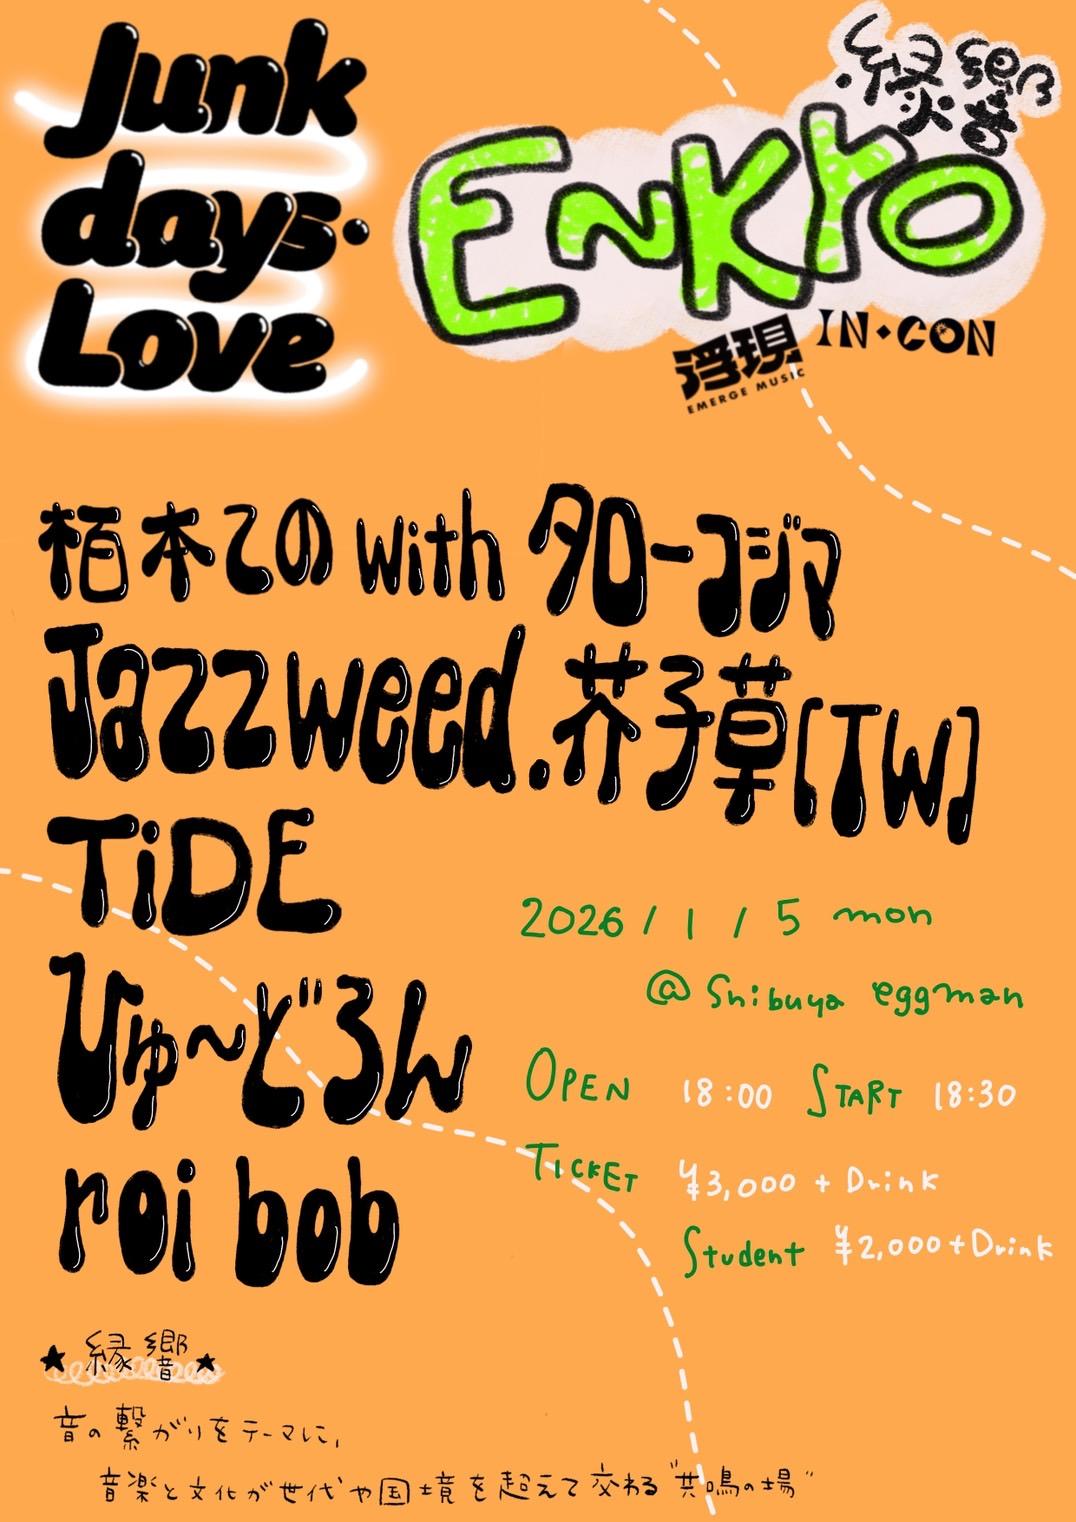 Junk
days.
Love
縁響
ENKYO
浮現
EMERGE MUSIC
IN・CON
栢本ての with タローコジマ
Jazzweed.芥子草[TW]
TiDE
ひゅ〜どろん
roi bob
2026 / 1 / 5 mon
@ Shibuya eggman
OPEN 18:00 START 18:30
TICKET ¥3,000 + Drink
Student ¥2,000 + Drink
★縁響★
音の繋がりをテーマに、
音楽と文化が世代や国境を超えて交わる"共鳴の場"